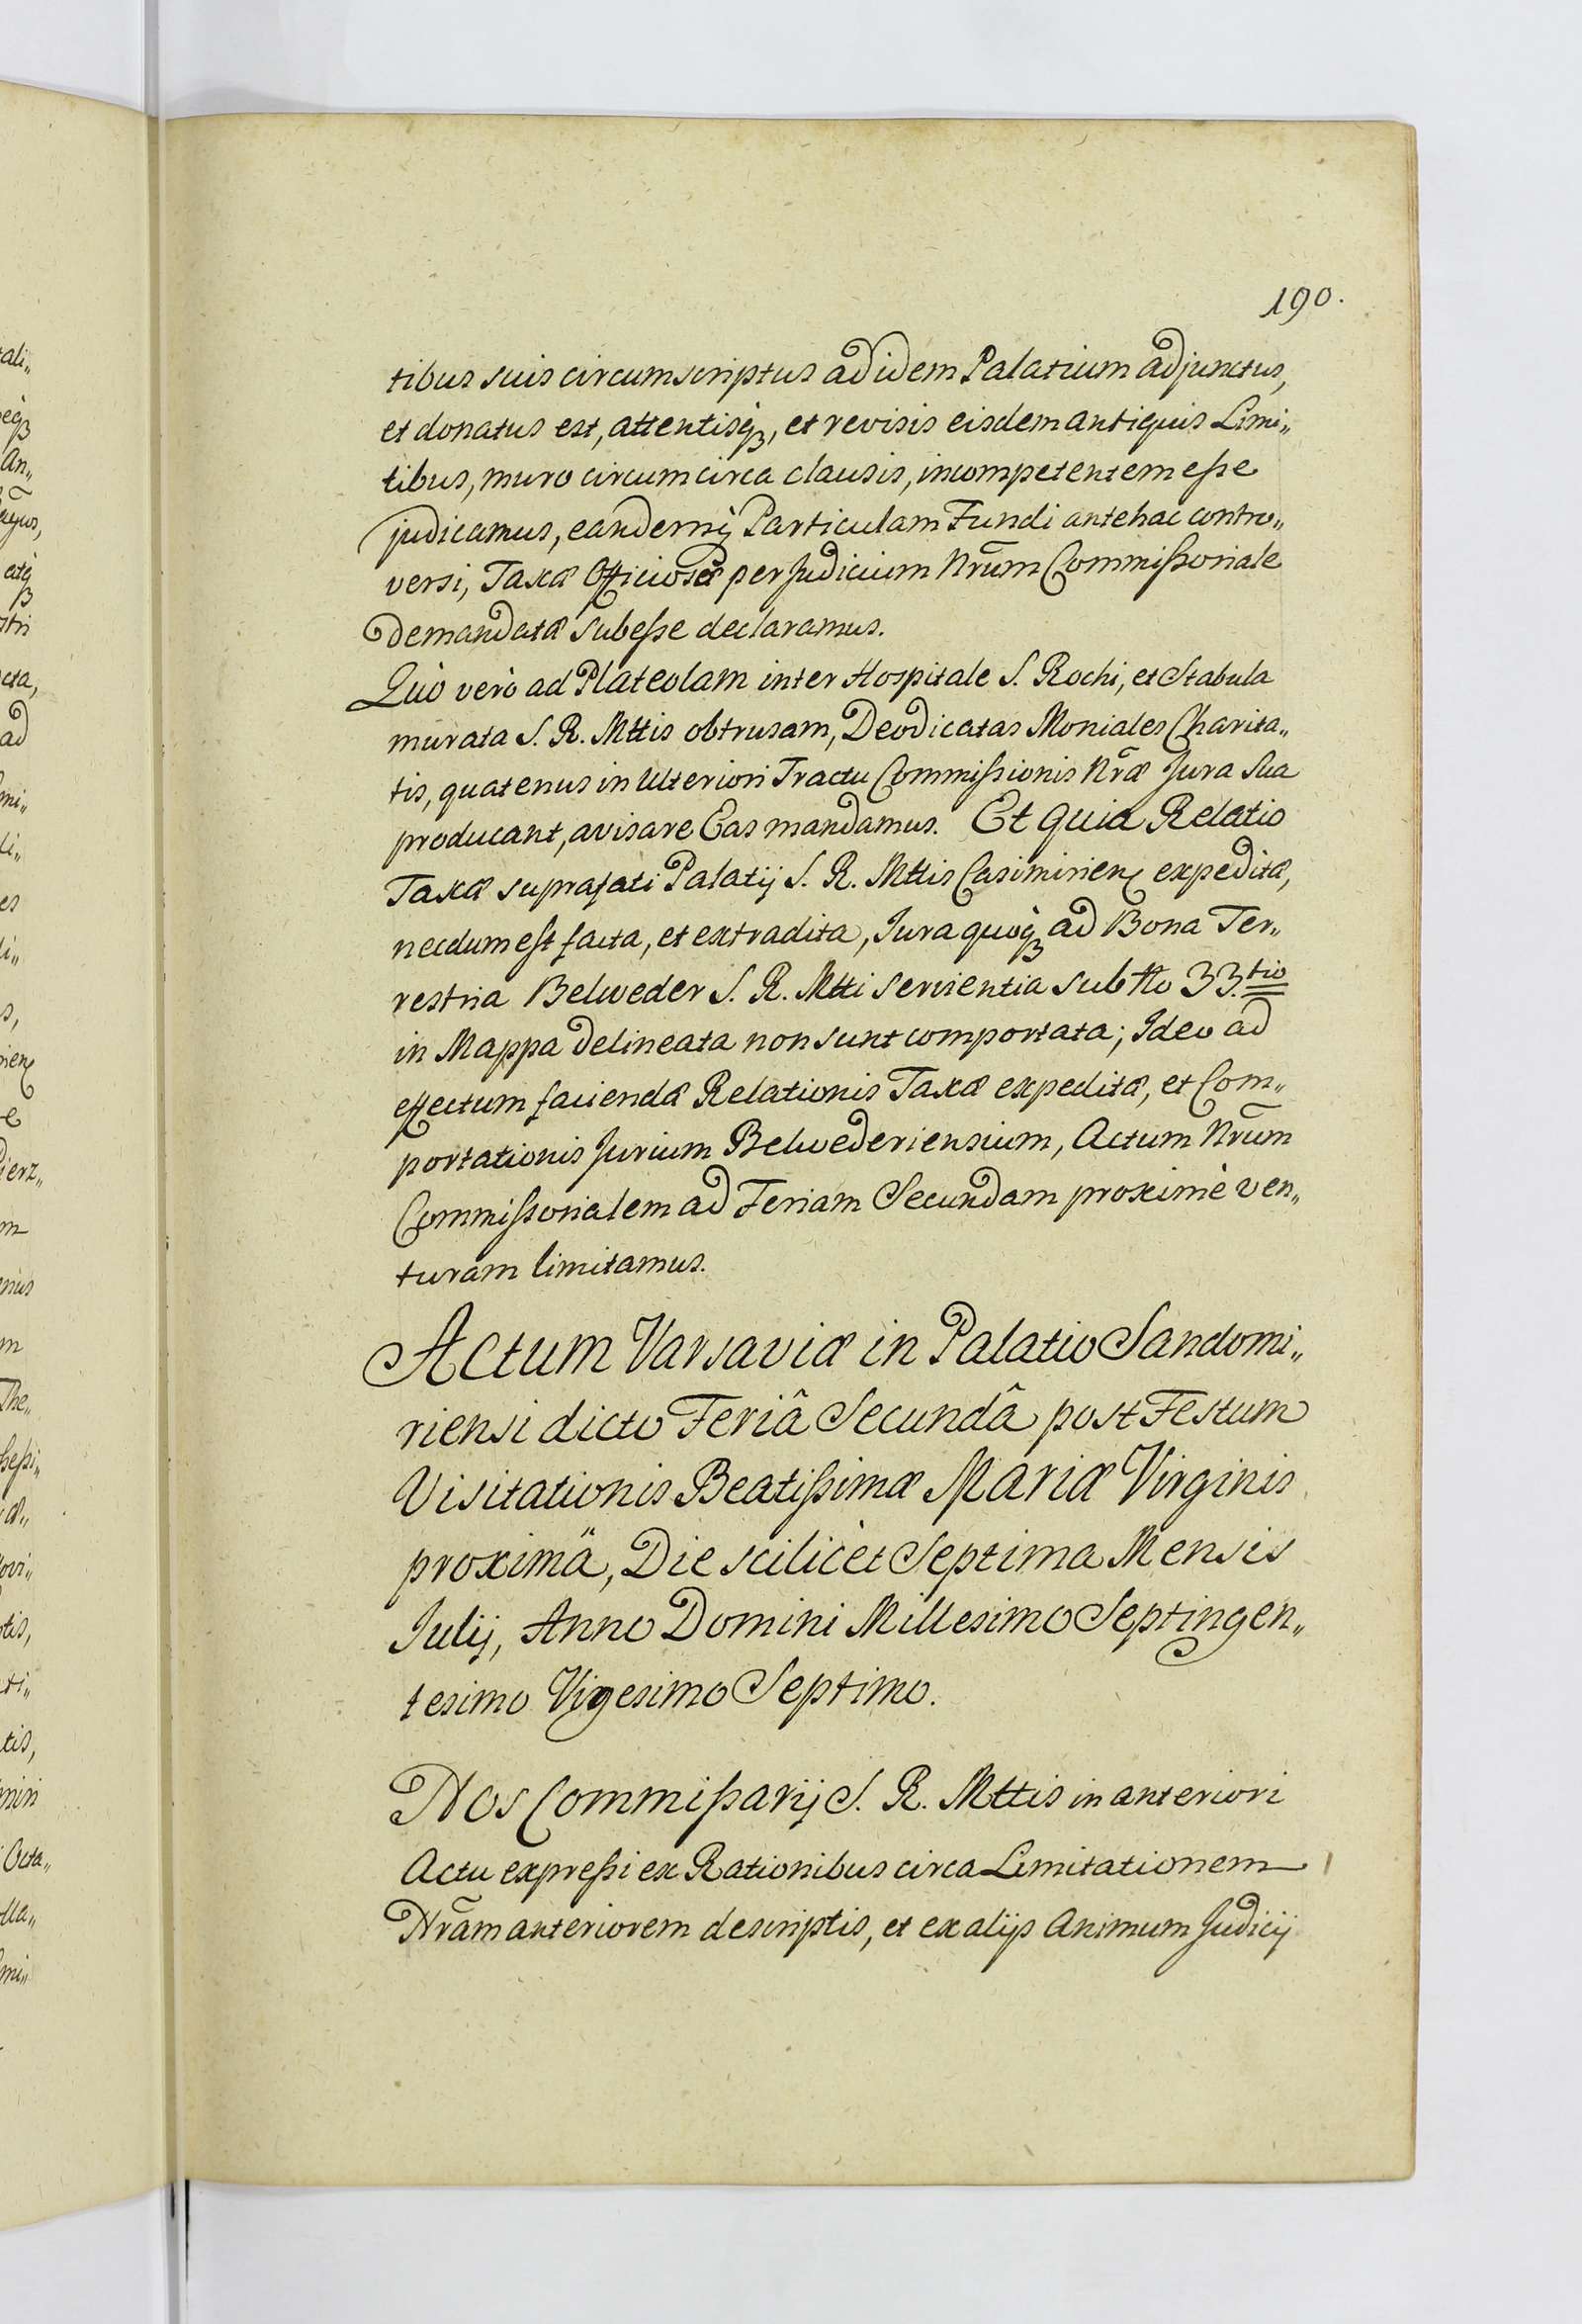 190.
tibus suis circumscriptus ad idem Palatium adjunctus,
et donatus est, attentisq̃, et revisis eisdem antiquis Limi„
tibus, muro circumcirca clausis, incompetentem eſse
judicamus, eandemq̃ Particulam Fundi antehac contro„
versi, Taxæ Officiosæ per Judicium Nrũm Commiſsoriale
demandatæ subeſse declaramus.
Quò verò ad Plateolam inter Hospitale S. Rochi, et Stabula
murata S. R. Mttis obtrusam, Deodicatas Moniales Charita„
tis, quatenus in ulteriori Tractu Commiſsionis Nræ̃ Jura sua
producant, avisare Eas mandamus. Et quia Relatio
Taxæ suprafati Palatij S. R. Mttis Casimirien expeditæ,
necdum eſt facta, et extradita, Jura quoq̃ ad Bona Ter„
restria Belweder S. R. Mtti servientia sub No 33.tio
in Mappa delineata non sunt comportata; Ideo ad
effectum faciendæ Relationis Taxæ expeditæ, et Com„
portationis Jurium Belwederiensium, Actum Nrũm
Commiſsorialem ad Feriam Secundam proximè ven„
turam limitamus.
Actum Varsaviæ in Palatio Sandomi„
riensi dicto Feriâ Secundâ post Festum
Visitationis Beatiſsimæ Mariæ Virginis
proximä, Die scilicèt Septima Mensis
Julij, Anno Domini Millesimo Septingen„
tesimo Vigesimo Septimo.
Nos Commiſsarij S. R. Mttis in anteriori
Actu expreſsi ex Rationibus circa Limitationem
Nrãm anteriorem descriptis, et ex alijs Animum Judicij